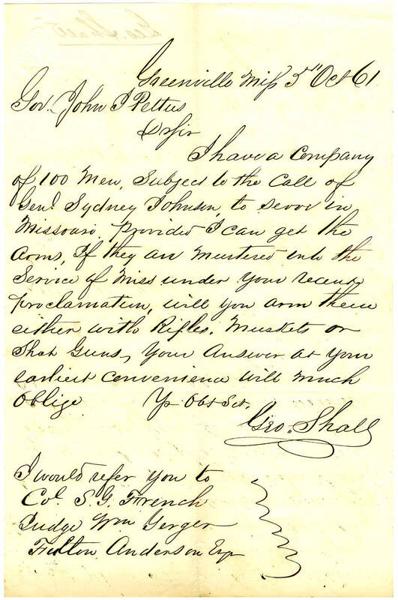 Greenville Miss 3rd Oct 61
Gov. John J Pettus
Dr Sir
I have a Company
of 100 Men, Subject to the Call of
Genl Sydney Johnson, to serve in
Missouri, provided I can get the
Arms, If they are Mustered into the
Service of Miss under Your recent
proclamation, will you arm them
either with Rifles, Muskets or
Shot Guns, Your Answer at your
earliest convenience will much
Oblige Yr Obt Svt.
Geo. Shall
I would refer you to
Col S. G. French
Judge Wm Yerger
Fulton Anderson Esqr